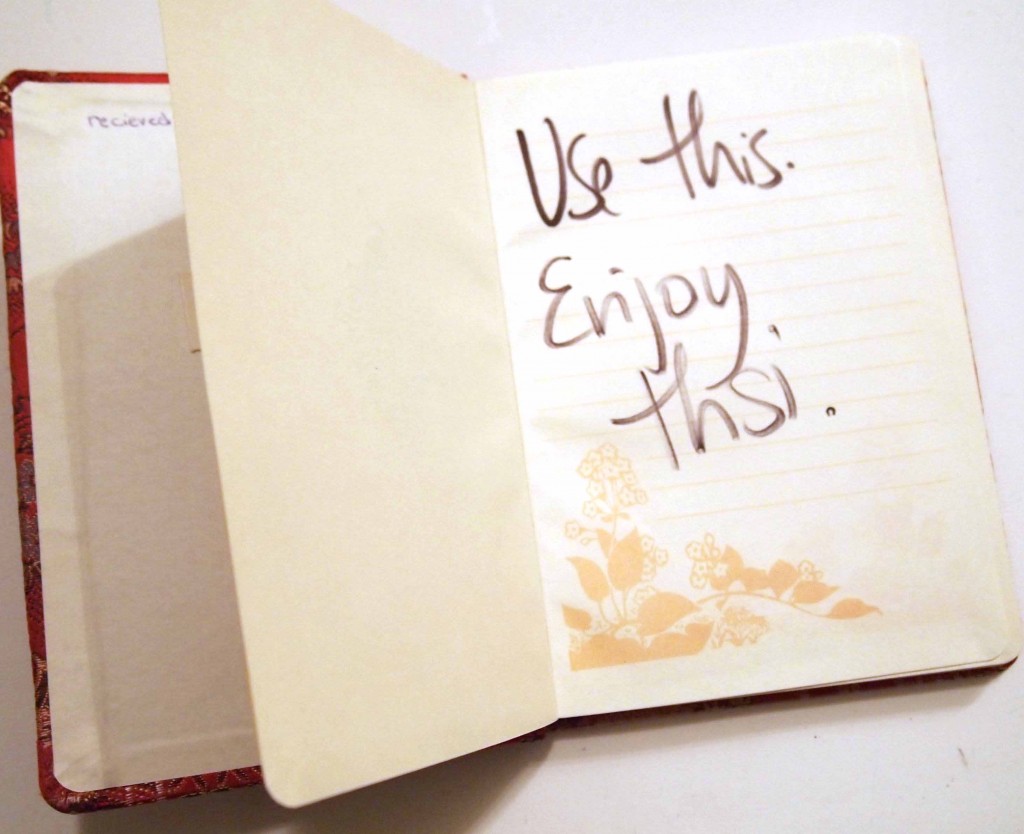 recieved
Use this.
Enjoy
thsi.